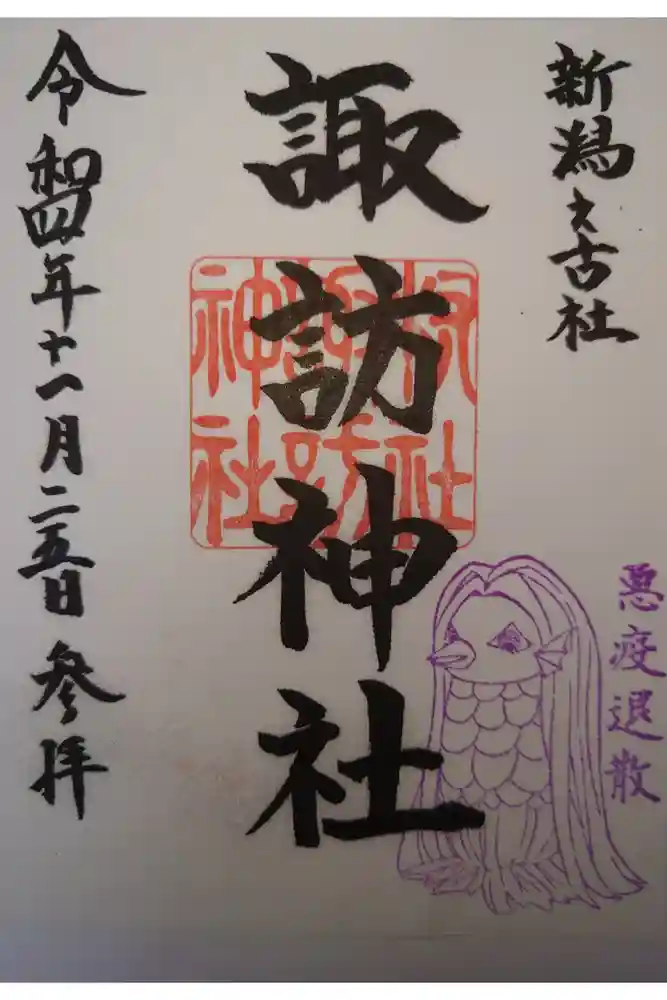 新潟 古社
諏訪神社
村社
諏訪
神社
悪疫退散
令和四年十一月二五日 参拝